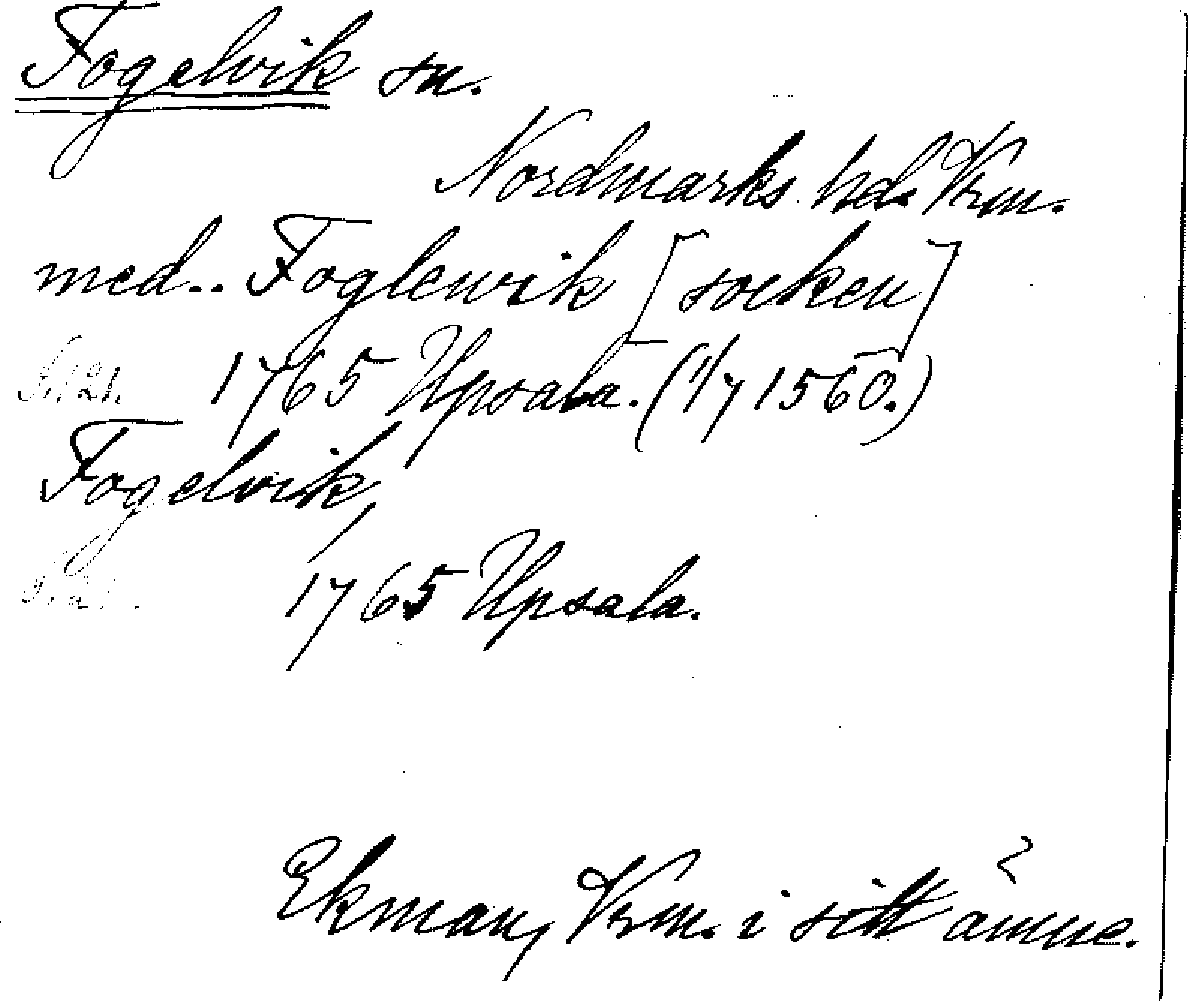 Fogelvik sn.
Nordmarks hd. Vrm.
med.. Foglewik [socken]
S. 121. 1765 Upsala. (1/7 1560.)
Fogelvik,
1765 Upsala.
Ekman, Vrm. i sitt ämne.